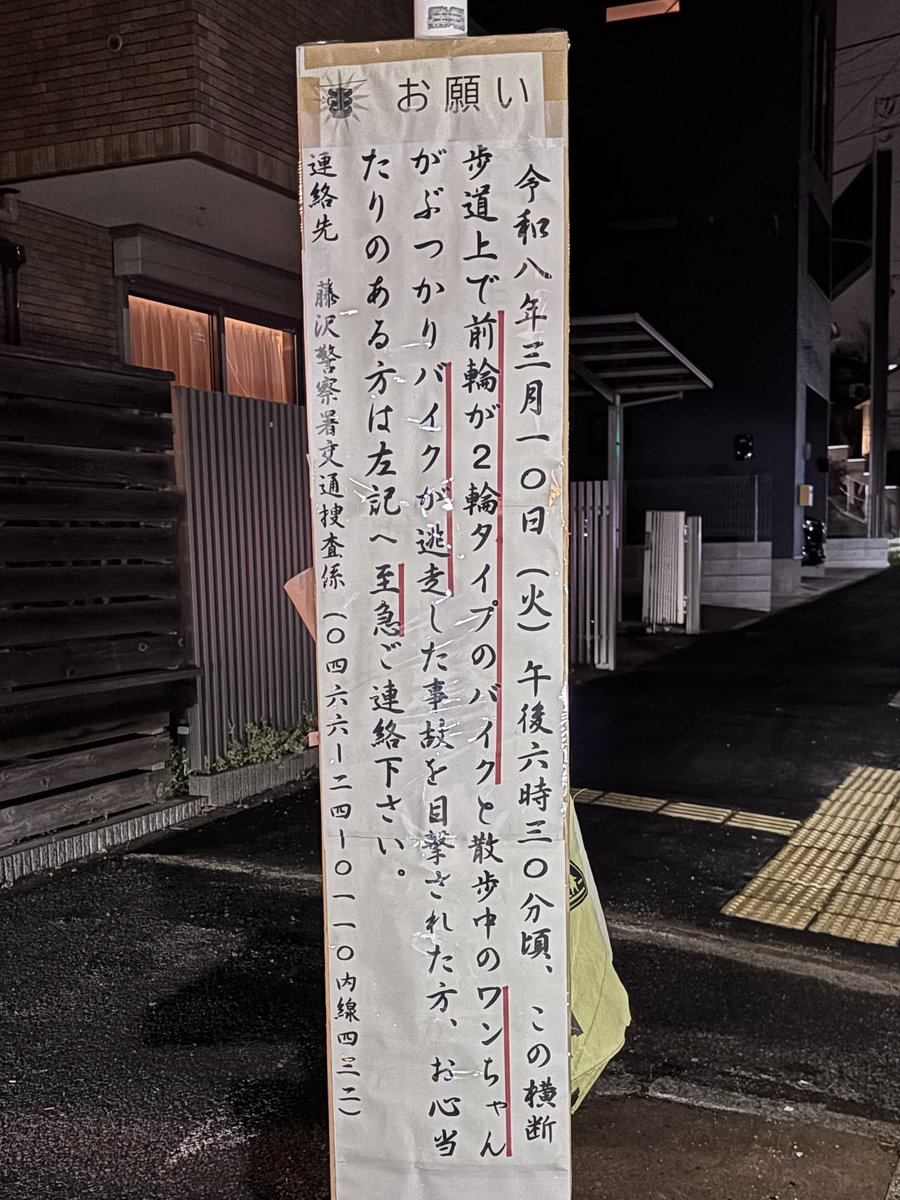 お願い
令和八年三月一〇日（火）午後六時三〇分頃、この横断
歩道上で前輪が２輪タイプのバイクと散歩中のワンちゃん
がぶつかりバイクが逃走した事故を目撃された方、お心当
たりのある方は左記へ至急ご連絡下さい。
連絡先　藤沢警察署交通捜査係（〇四六六ー二四ー〇一一〇内線四三二）